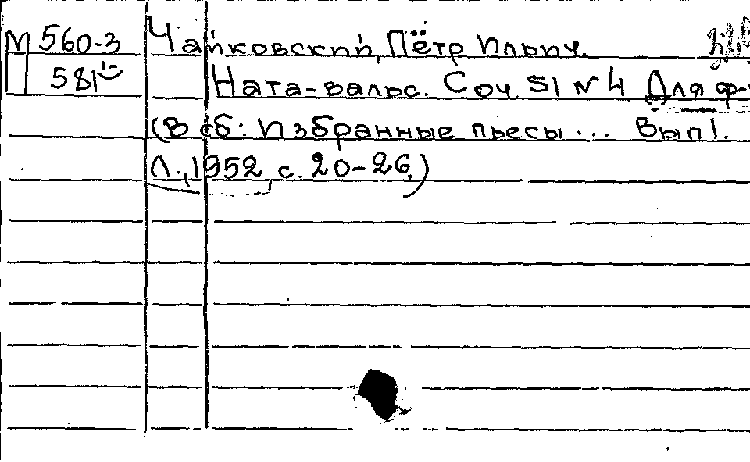 М 560-3 Чайковский, Пётр Ильич.
581 Ната-вальс. Соч. 51 № 4 Для ф-
(В сб: Избранные пьесы... Вып 1.
Л., 1952, с. 20-26.)